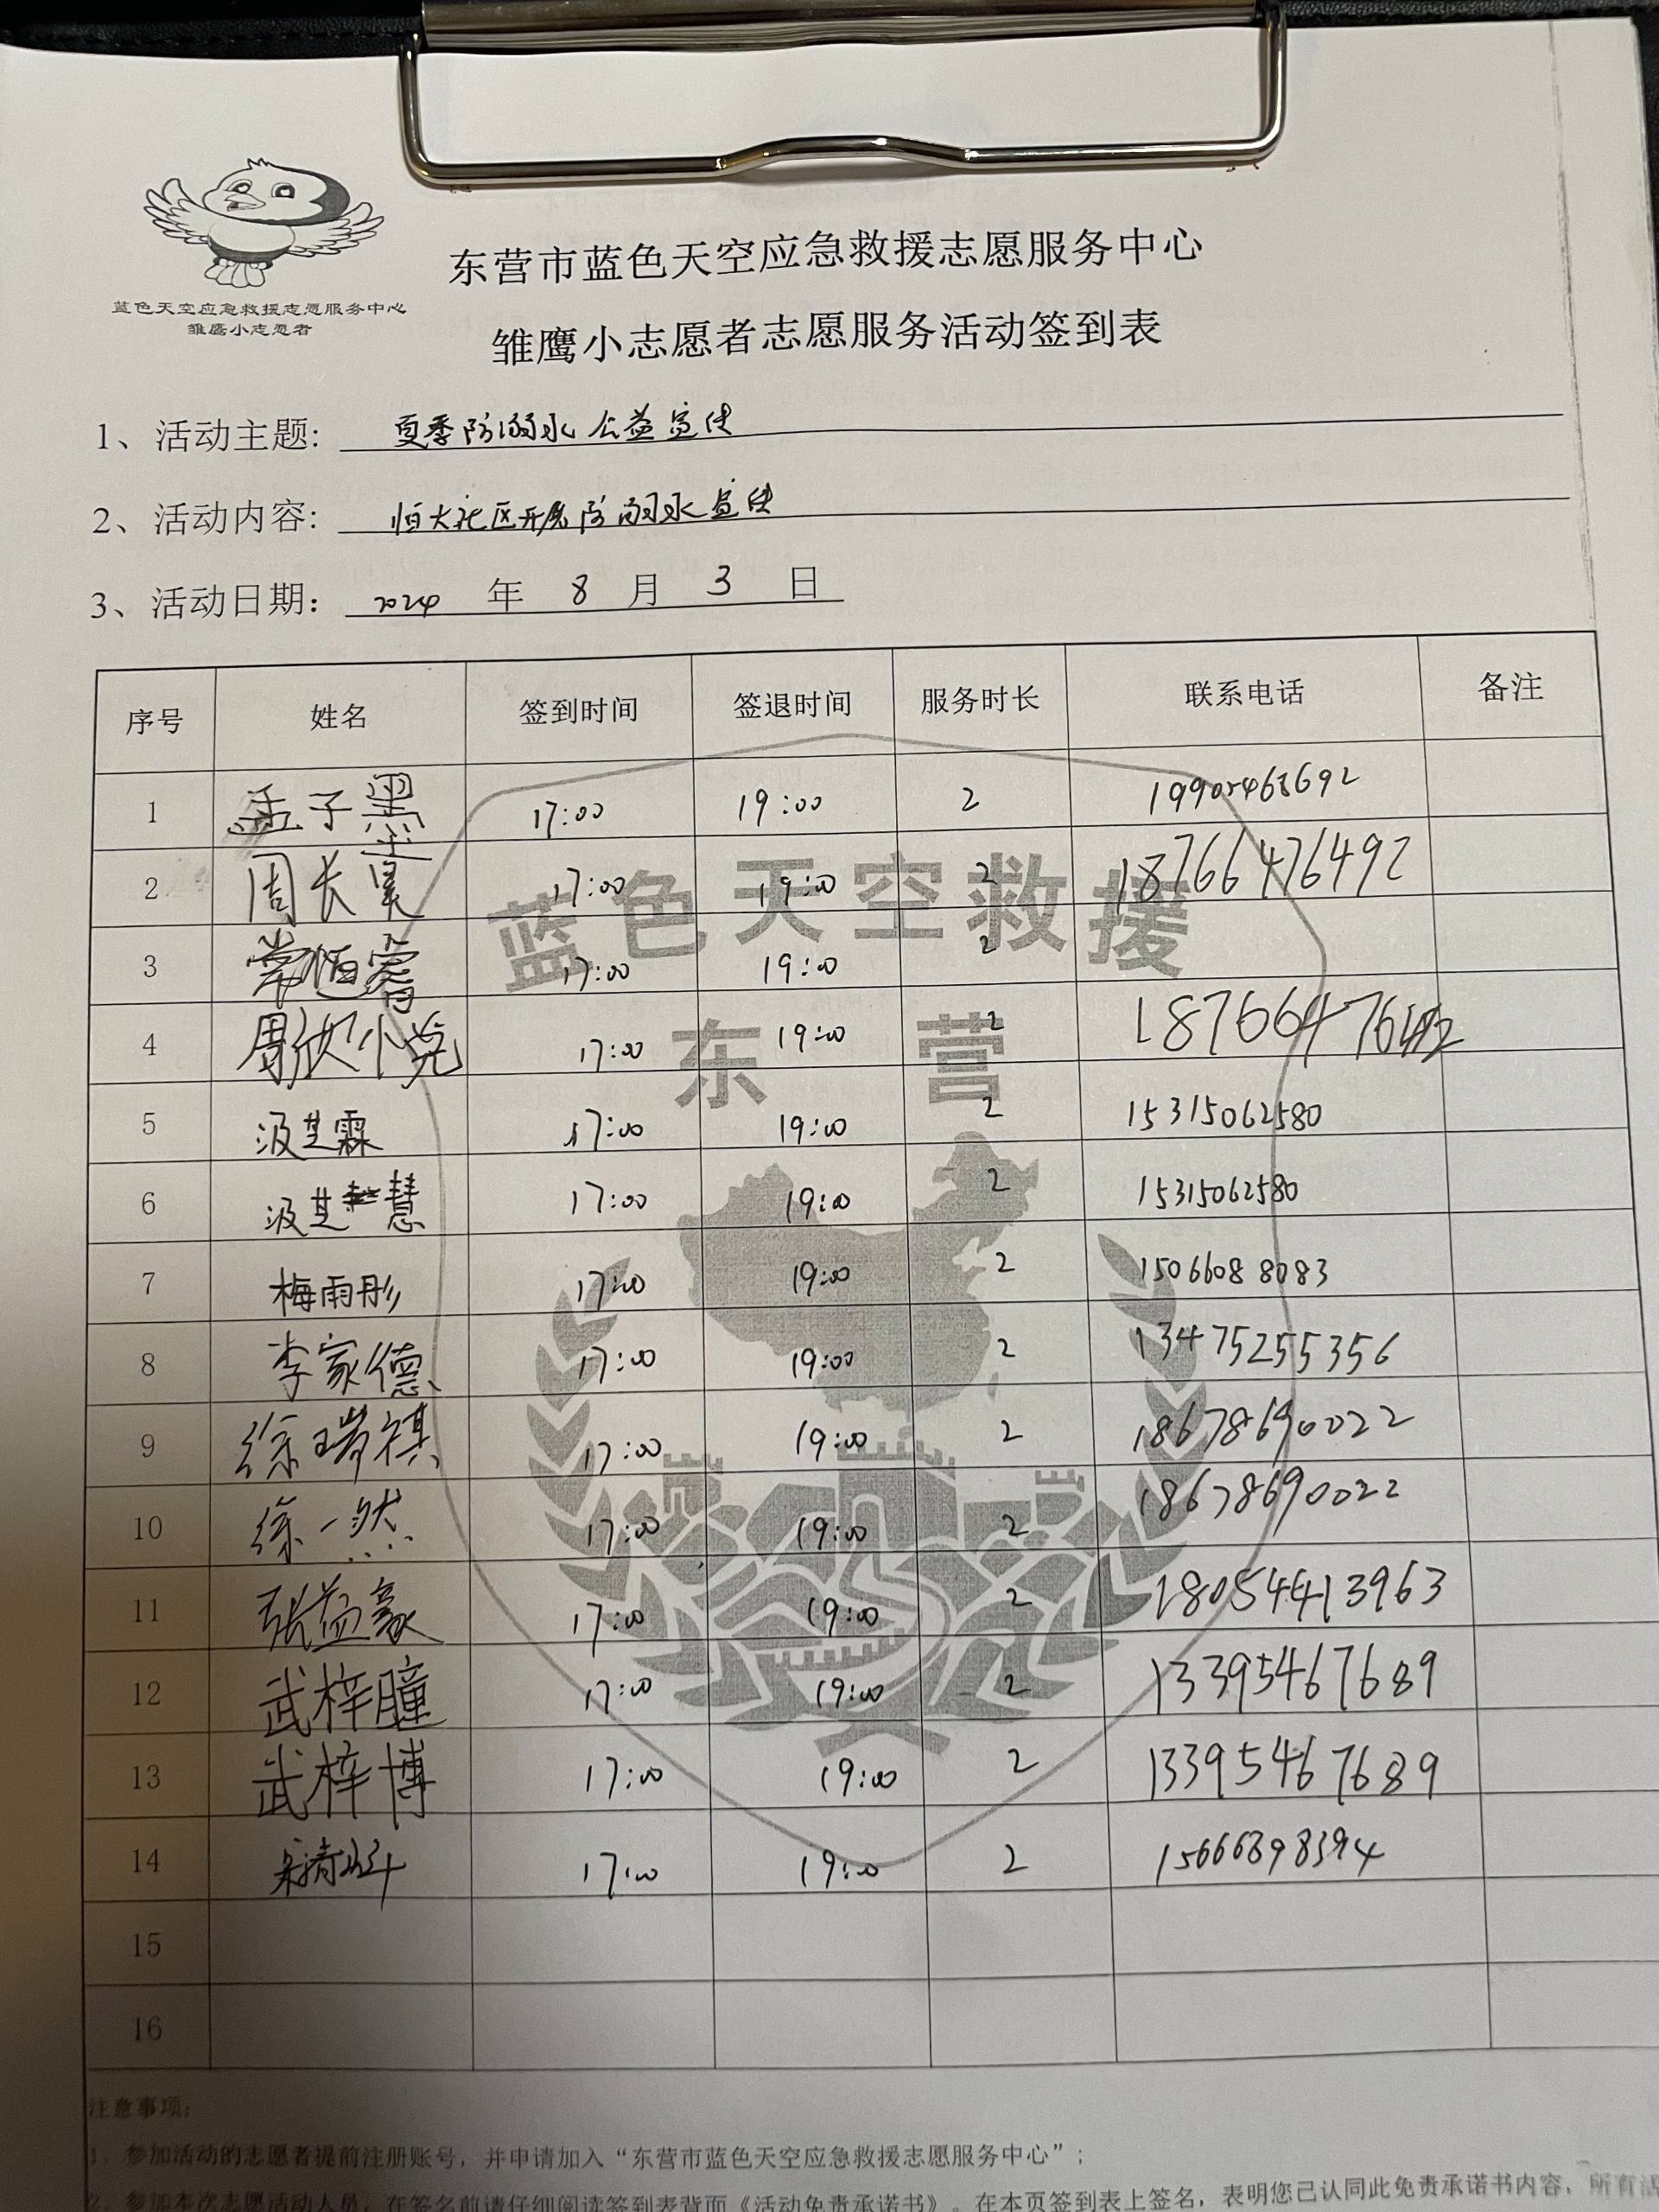 蓝色天空应急救援志愿服务中心
雏鹰小志愿者
东营市蓝色天空应急救援志愿服务中心
雏鹰小志愿者志愿服务活动签到表
1、活动主题: 夏季防溺水公益宣传
2、活动内容: 恒大社区开展防溺水宣传
3、活动日期: 2024 年 8 月 3 日
序号 姓名 签到时间 签退时间 服务时长 联系电话 备注
1 孟子墨 17:00 19:00 2
2 周长昊 17:00 19:00 2 18766476492
3 常恒睿 17:00 19:00 2
4 周欣 17:00 19:00 2
5 汲芝霖 17:00 19:00 2 15315062580
6 汲芝慧 17:00 19:00 2 15315062580
7 梅雨彤 17:00 19:00 2 15066088083
8 李家德 17:00 19:00 2 13475255356
9 徐瑞祺 17:00 19:00 2 18678690022
10 徐一然 17:00 19:00 2 18678690022
11 张益豪 17:00 19:00 2 18054413963
12 武梓瞳 17:00 19:00 2 13395467689
13 武梓博 17:00 19:00 2 13395467689
14 17:00 19:00 2 15666898394
15
16
蓝色天空救援
东营
注意事项:
1、参加活动的志愿者提前注册账号，并申请加入“东营市蓝色天空应急救援志愿服务中心”；
2、参加本次志愿活动人员，在签名前请仔细阅读签到表背面《活动免责承诺书》。在本页签到表上签名，表明您已认同此免责承诺书内容，所有活